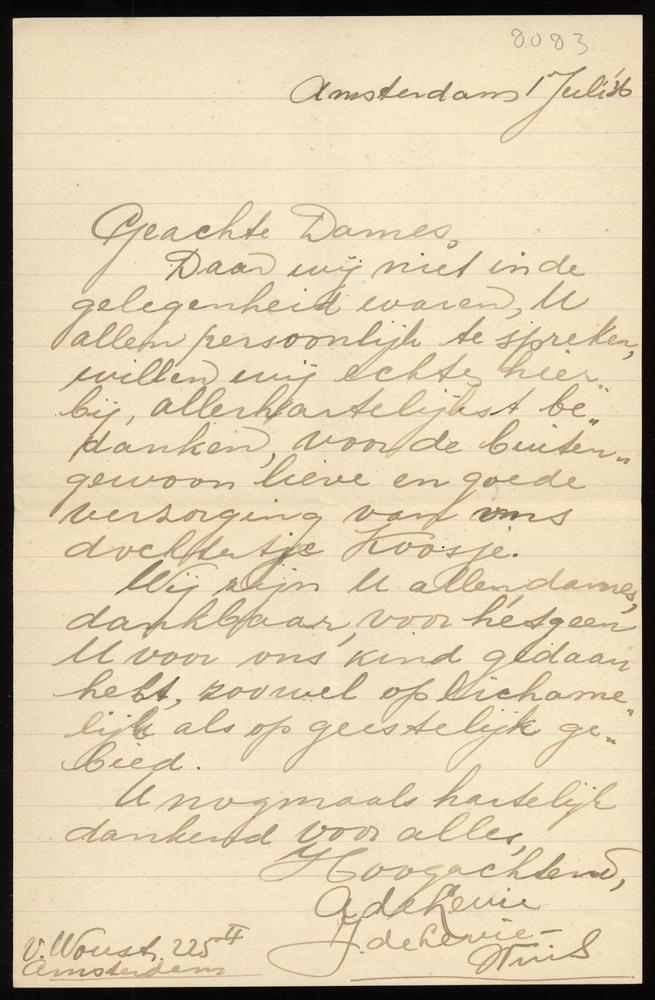 8083
Amsterdam 1 Juli '36
Geachte Dames,
Daar wij niet in de
gelegenheid waren, U
allen persoonlijk te spreken,
willen wij echter hier
bij, allerhartelijkst be„
danken, voor de buiten„
gewoon lieve en goede
verzorging van ons
dochtertje Koosje.
Wij zijn U allen dames,
dankbaar, voor hetgeen
U voor ons kind gedaan
hebt, zoowel op lichame„
lijk als op geestelijk ge„
bied.
U nogmaals hartelijk
dankend voor alles,
Hoogachtend,
A de Levie
J. de Levie-
v. Woust. 225 II
Amsterdam